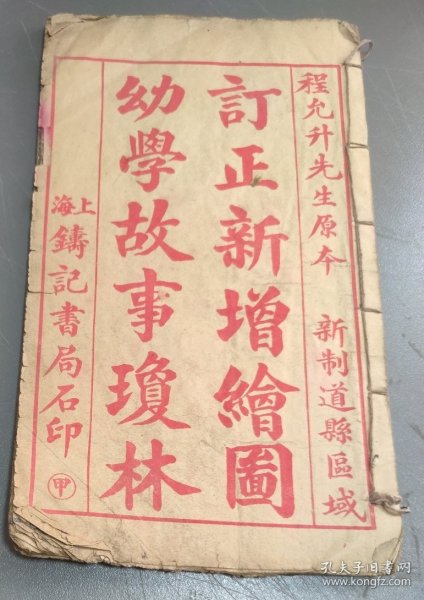 程允升先生原本 新制道縣區域
訂正新增繪圖
幼學故事瓊林
上海鑄記書局石印
甲
孔夫子旧书网
www.kongfz.com